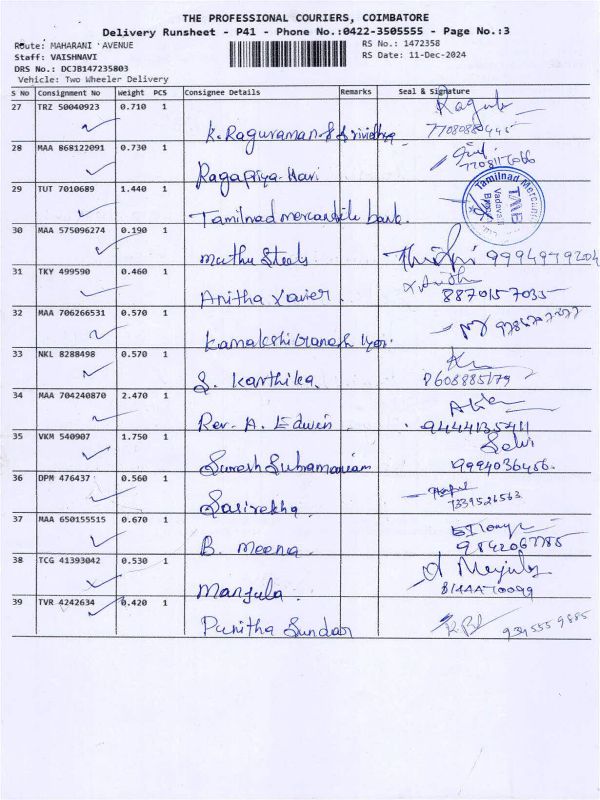 THE PROFESSIONAL COURIERS, COIMBATORE
Delivery Runsheet - P41 - Phone No.:0422-3505555 - Page No.:3
Route: MAHARANI AVENUE RS No.: 1472358
Staff: VAISHNAVI RS Date: 11-Dec-2024
DRS No.: DCJB147235803
Vehicle: Two Wheeler Delivery
S No Consignment No Weight PCS Consignee Details Remarks Seal & Signature
27 TRZ 50040923 0.710 1
K. Raguraman
28 MAA 868122091 0.730 1
Ragapriya Hari
29 TUT 7010689 1.440 1
Tamilnad mercantile bank.
Tamilnad Mercan
TMB
Vadavalli
30 MAA 575096274 0.190 1
Muthu Steels 9994979204
31 TKY 499590 0.460 1
Anitha Xavier. 8870157035
32 MAA 706266531 0.570 1
Kamakshi Ganesh Iyer.
33 NKL 8288498 0.570 1
S. Karthika. 8608885179
34 MAA 704240870 2.470 1
Rev. A. Edwin 9444135411
35 VKM 540907 1.750 1
Selvi
Suresh Subramaniam 9994036466.
36 DPM 476437 0.560 1
Sasirekha. 7339526563
37 MAA 650155515 0.670 1
B. Meena.
38 TCG 41393042 0.530 1
Manjula.
39 TVR 4242634 0.420 1
Punitha Sundar 9345559885